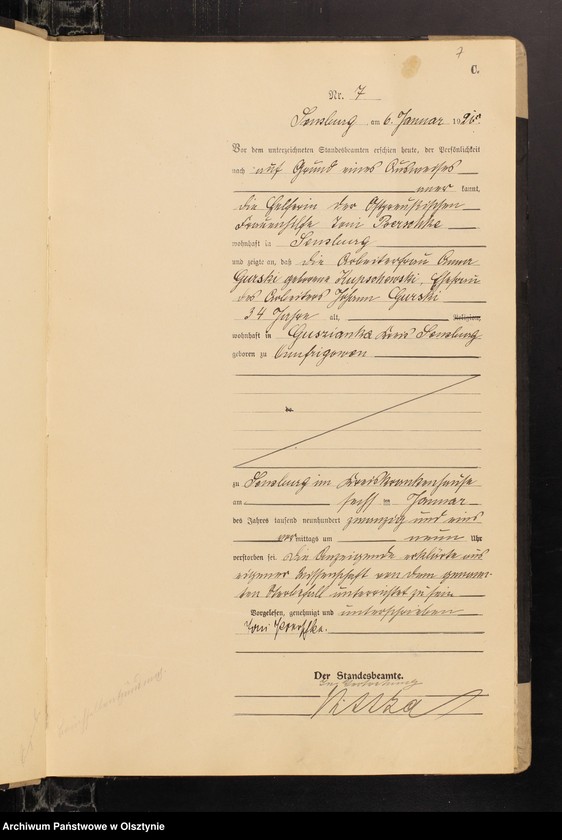 7
C.
Nr. 7
Sensburg am 6. Januar 19
Vor dem unterzeichneten Standesbeamten erschien heute, der Persönlichkeit
nach auf Grund eines Ausweises
aner kannt,
die Helferin der Ostpreußischen
Frauenhilfe Toni
wohnhaft in Sensburg
und zeigte an, daß die Arbeiterfrau Anna
Gurski geborene Kupschewski, Ehefrau
des Arbeiters Johann Gurski
34 Jahre alt, Religion,
wohnhaft in Guszianka Kreis Sensburg
geboren zu
zu Sensburg im Kreiskrankenhause
am sechs ten Januar
des Jahres tausend neunhundert zwanzig und eins
vor mittags um neun Uhr
verstorben sei. Die Anzeigende erklärte aus
eigener Wissenschaft von dem genann-
ten Sterbefall unterrichtet zu sein
Vorgelesen, genehmigt und unterschrieben
Toni
Der Standesbeamte.
In Vertretung
Archiwum Państwowe w Olsztynie